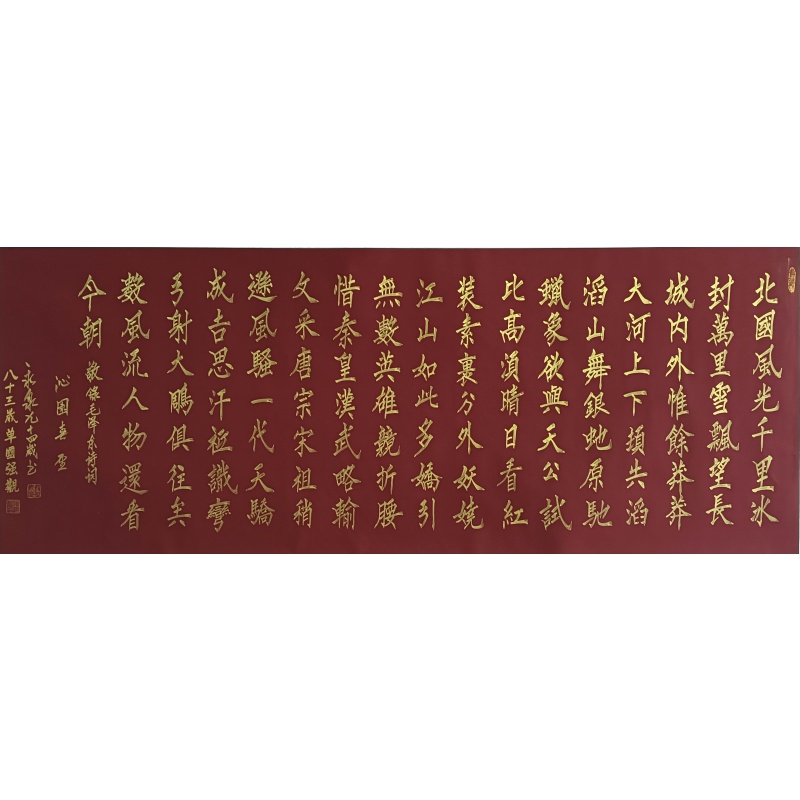 北國風光千里冰
封萬里雪飄望長
城内外惟餘莽莽
大河上下頓失滔
滔山舞銀蛇原馳
蠟象欲與天公試
比高須晴日看紅
裝素裹分外妖嬈
江山如此多嬌引
無數英雄競折腰
惜秦皇漢武略輸
文采唐宗宋祖稍
遜風騷一代天驕
成吉思汗祗識彎
弓射大鵰俱往矣
數風流人物還看
今朝
敬錄毛澤東詩詞
沁園春雪
八十三歲